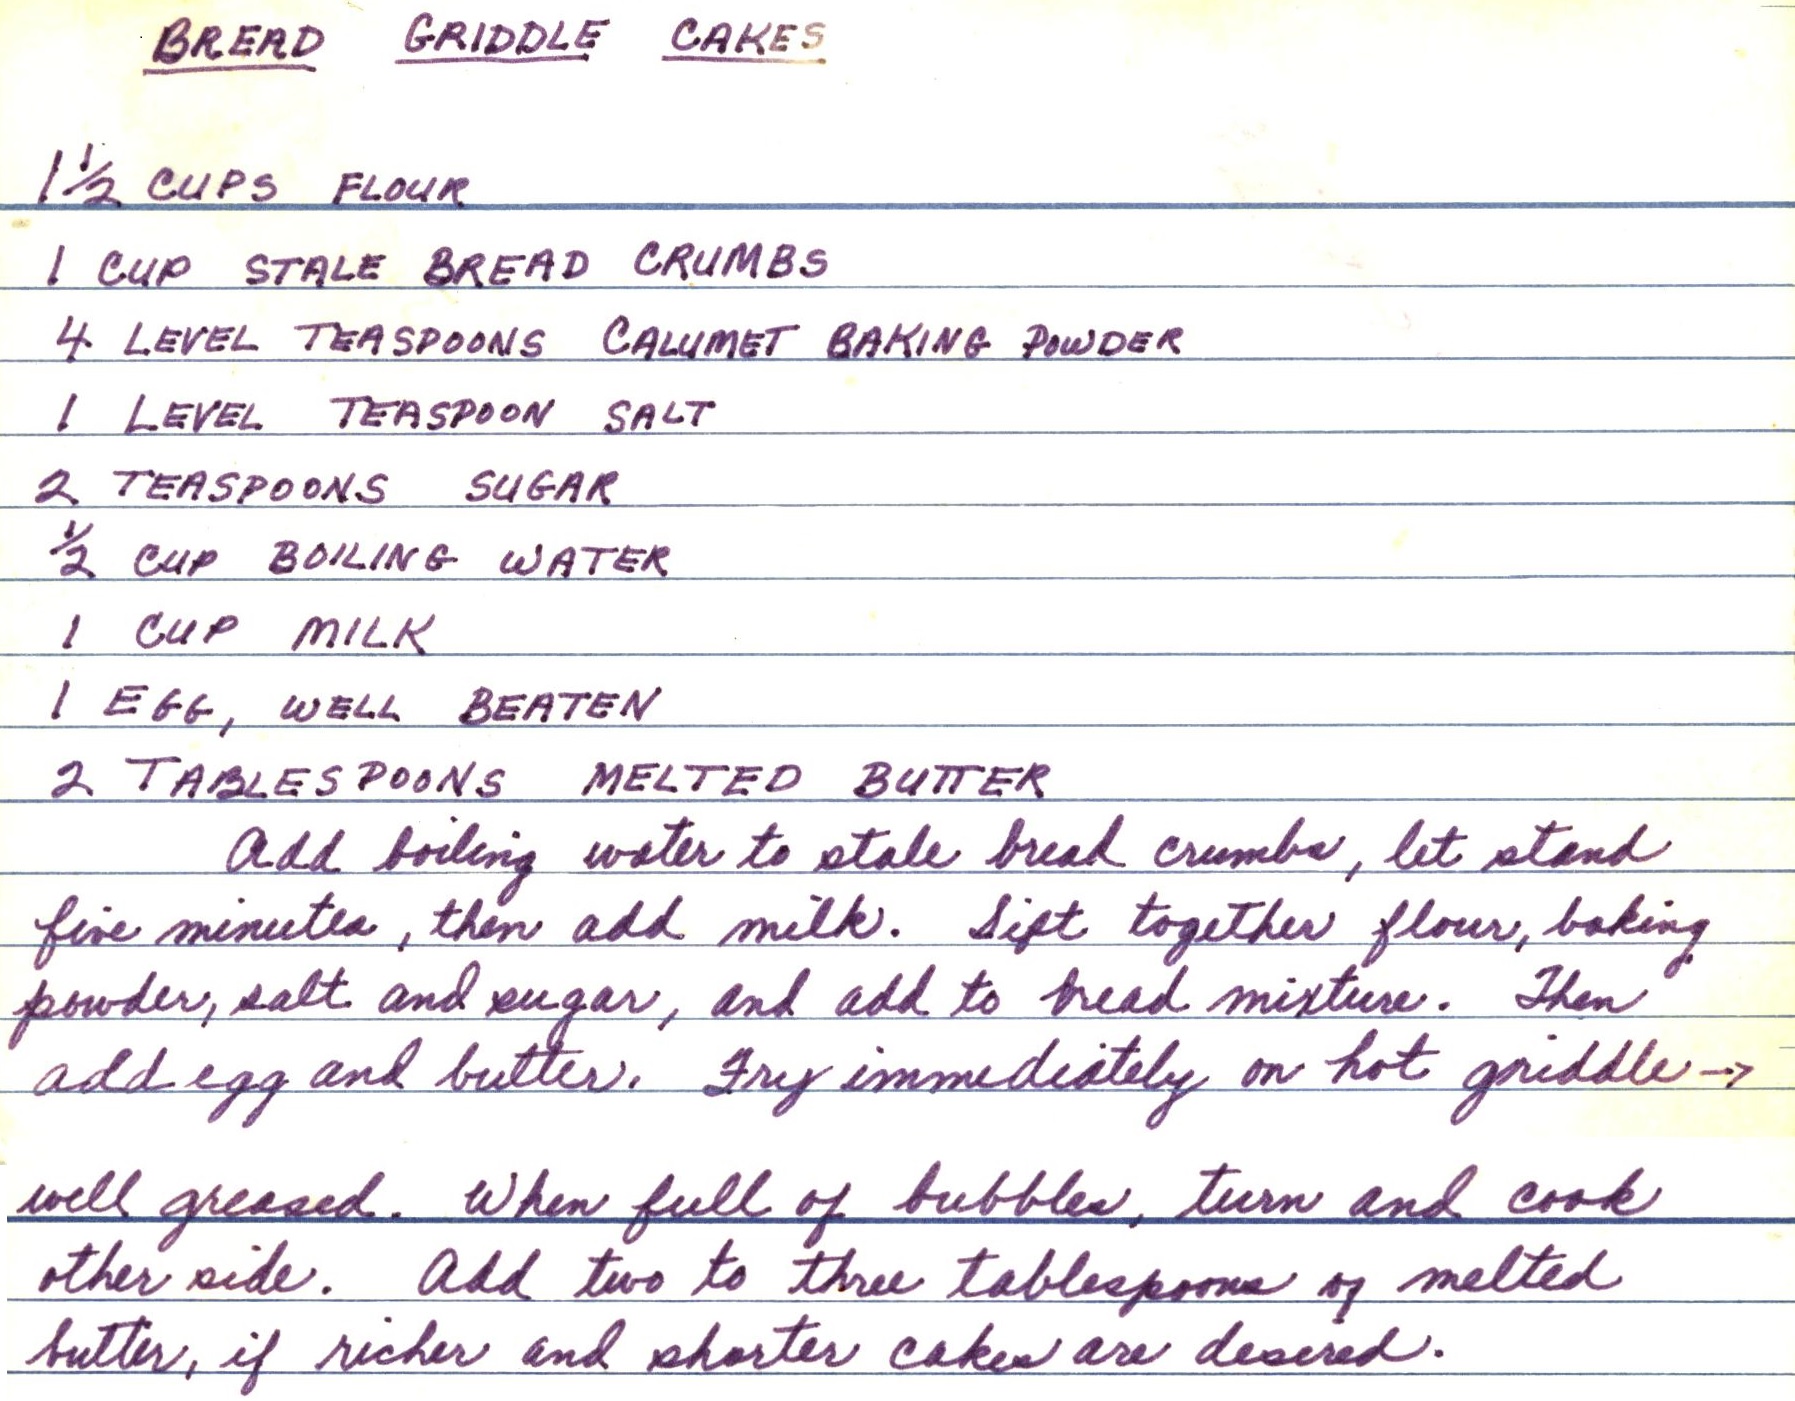 BREAD GRIDDLE CAKES
1 1/2 CUPS FLOUR
1 CUP STALE BREAD CRUMBS
4 LEVEL TEASPOONS CALUMET BAKING POWDER
1 LEVEL TEASPOON SALT
2 TEASPOONS SUGAR
1/2 CUP BOILING WATER
1 CUP MILK
1 EGG, WELL BEATEN
2 TABLESPOONS MELTED BUTTER
Add boiling water to stale bread crumbs, let stand
five minutes, then add milk. Sift together flour, baking
powder, salt and sugar, and add to bread mixture. Then
add egg and butter. Fry immediately on hot griddle →
well greased. When full of bubbles, turn and cook
other side. Add two to three tablespoons of melted
butter, if richer and shorter cakes are desired.